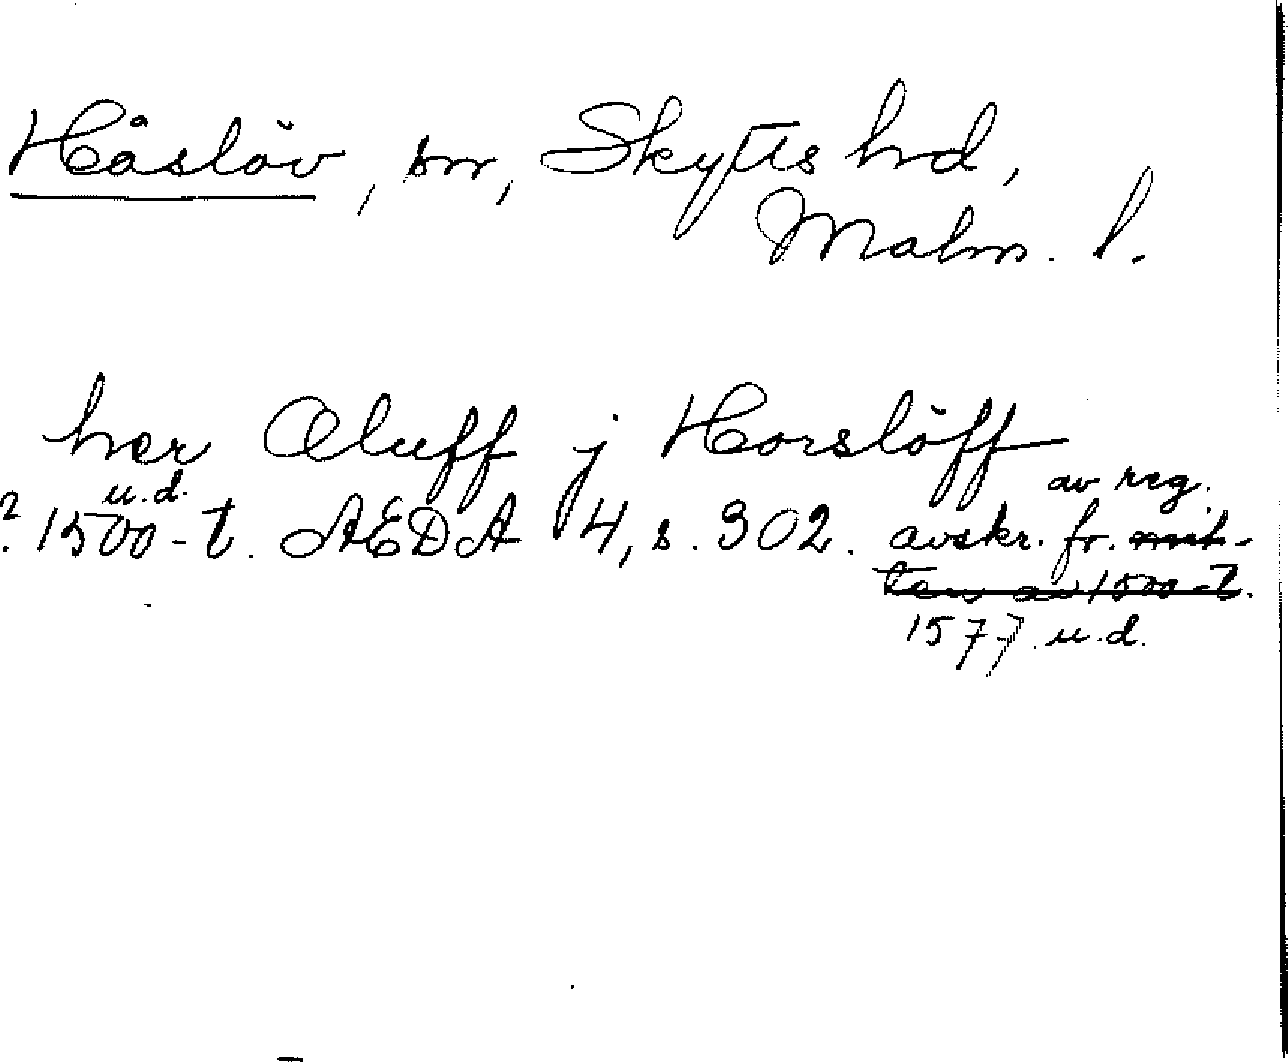 Håslöv, sn, Skytts hd,
Malm. l.
her Oluff j Horslöff
u.d. av reg.
? 1500-t. AEDA 4, s. 302. avskr. fr. mit-
ten av 1500-t.
1577 u.d.